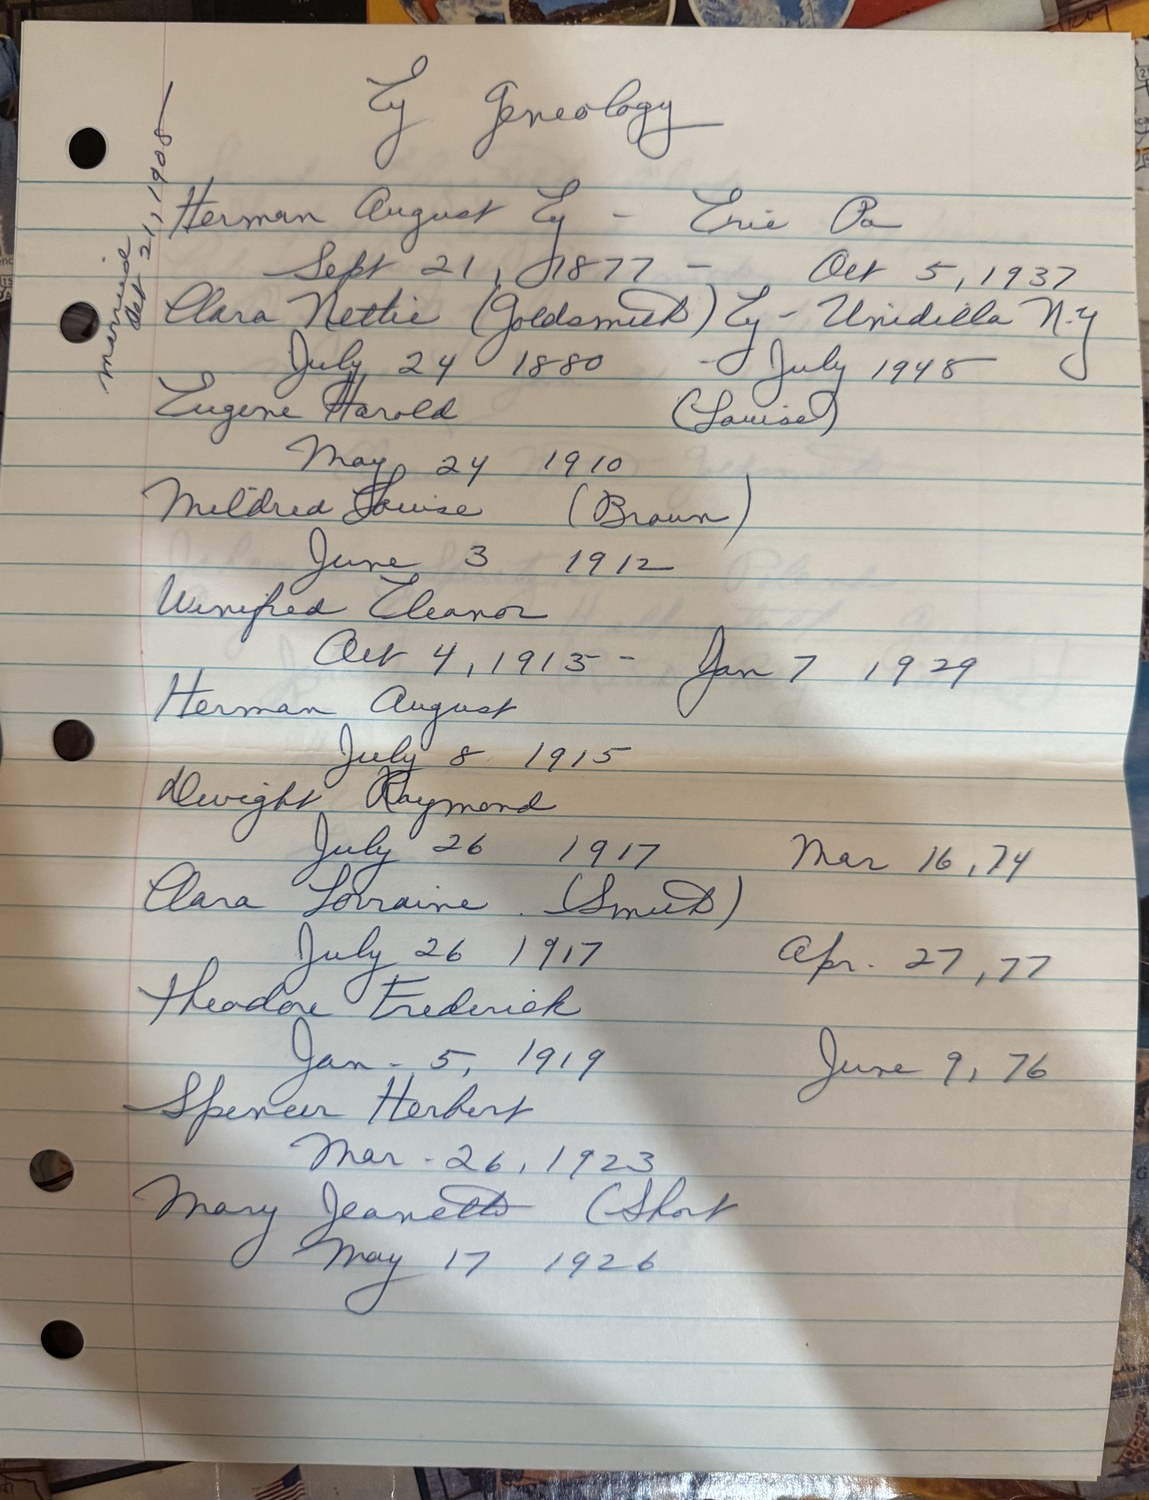 Ey Geneology
married Oct 21, 1908
Herman August Ey - Erie Pa
Sept 21, 1877 - Oct 5, 1937
Clara Nettie (Goldsmith) Ey - Unidilla N.Y
July 24 1880 - July 1948
Eugene Harold (Louise)
May 24 1910
Mildred Louise (Braun)
June 3 1912
Winifred Eleanor
Oct 4, 1913 - Jan 7 1929
Herman August
July 8 1915
Dwight Raymond
July 26 1917 Mar 16, 74
Clara Lorraine (Smith)
July 26 1917 Apr. 27, 77
Theodore Frederick
Jan - 5, 1919 June 9, 76
Spencer Herbert
Mar - 26, 1923
Mary Jeanette (Short
May 17 1926